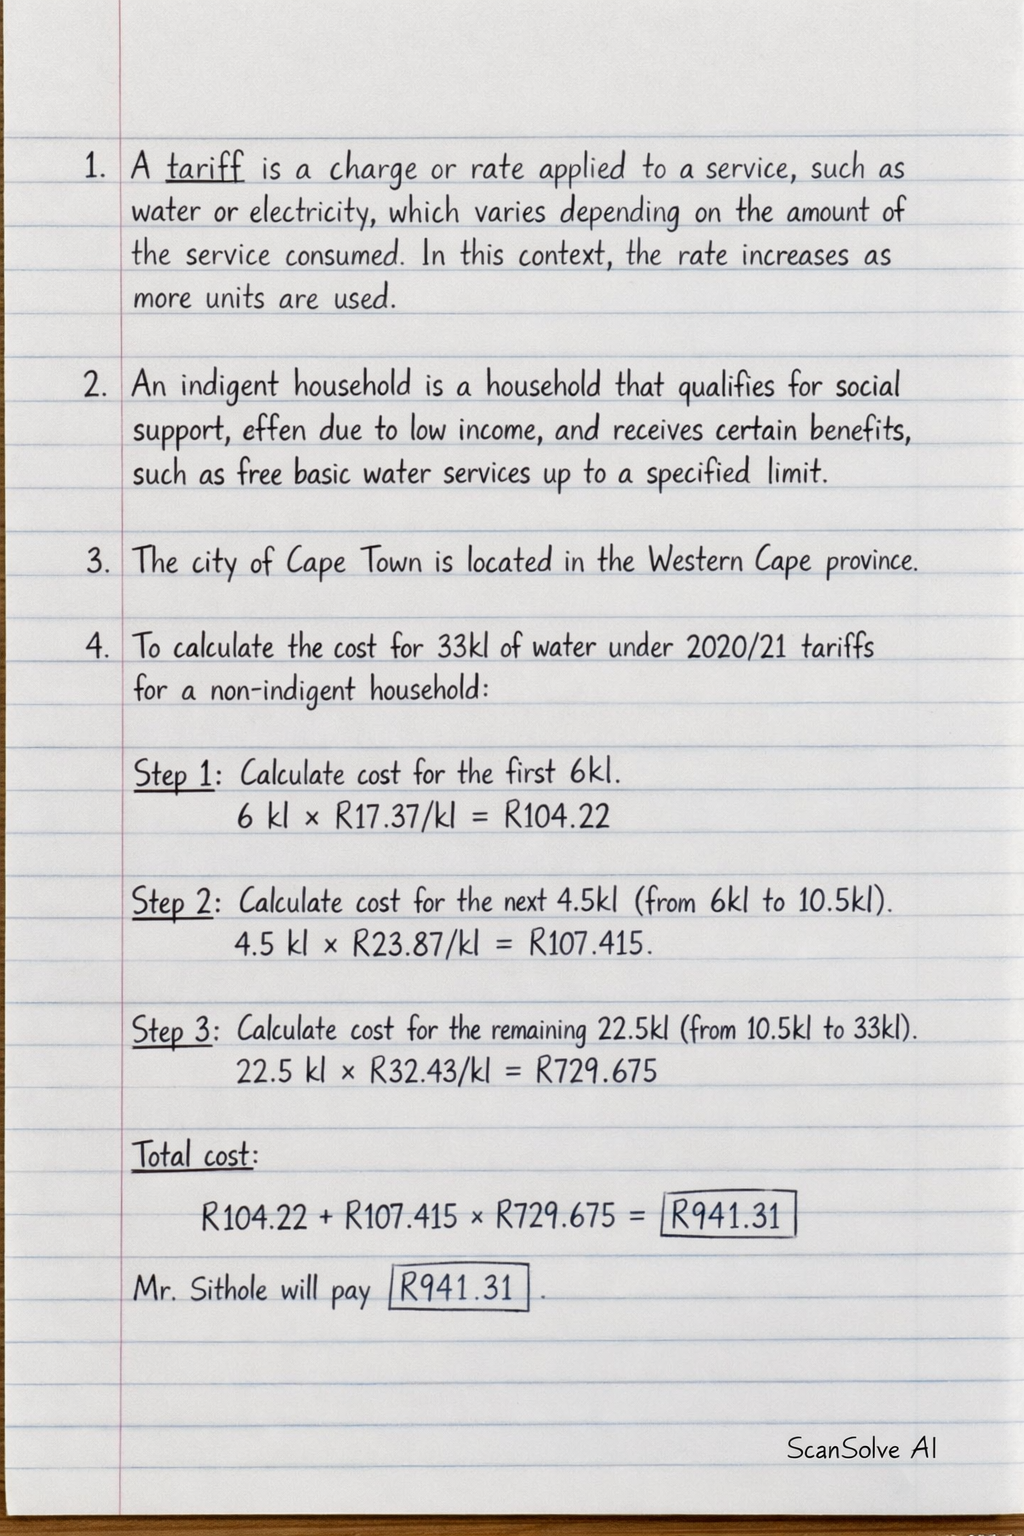 1. A tariff is a charge or rate applied to a service, such as
water or electricity, which varies depending on the amount of
the service consumed. In this context, the rate increases as
more units are used.
2. An indigent household is a household that qualifies for social
support, effen due to low income, and receives certain benefits,
such as free basic water services up to a specified limit.
3. The city of Cape Town is located in the Western Cape province.
4. To calculate the cost for 33kl of water under 2020/21 tariffs
for a non-indigent household:
Step 1: Calculate cost for the first 6kl.
6 kl × R17.37/kl = R104.22
Step 2: Calculate cost for the next 4.5kl (from 6kl to 10.5kl).
4.5 kl × R23.87/kl = R107.415.
Step 3: Calculate cost for the remaining 22.5kl (from 10.5kl to 33kl).
22.5 kl × R32.43/kl = R729.675
Total cost:
R104.22 + R107.415 × R729.675 = R941.31
Mr. Sithole will pay R941.31.
ScanSolve AI